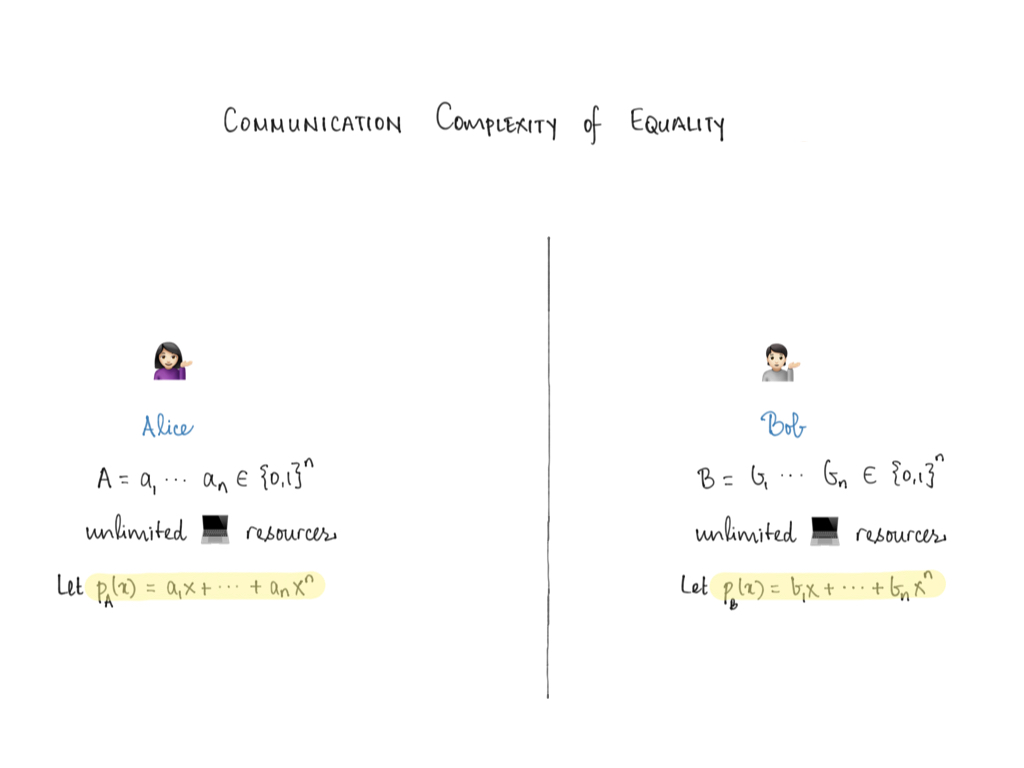 COMMUNICATION COMPLEXITY of EQUALITY
Alice
A = a₁ ⋯ aₙ ∈ {0,1}ⁿ
unlimited 💻 resources.
Let p_A(x) = a₁x + ⋯ + aₙxⁿ
Bob
B = b₁ ⋯ bₙ ∈ {0,1}ⁿ
unlimited 💻 resources.
Let p_B(x) = b₁x + ⋯ + bₙxⁿ